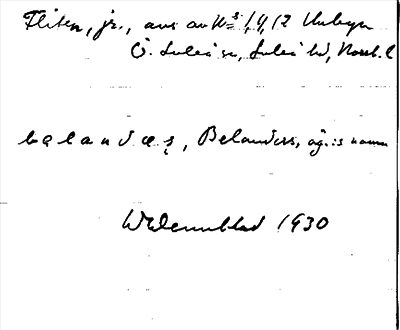 Fliten, jr., avs av No 1, 4, 12 Unbyn
Ö. Luleå sn, Luleå tld, Norrb. l
b a l a n d æ ʂ, Belanders, äg:s namn
W Dennblad 1930